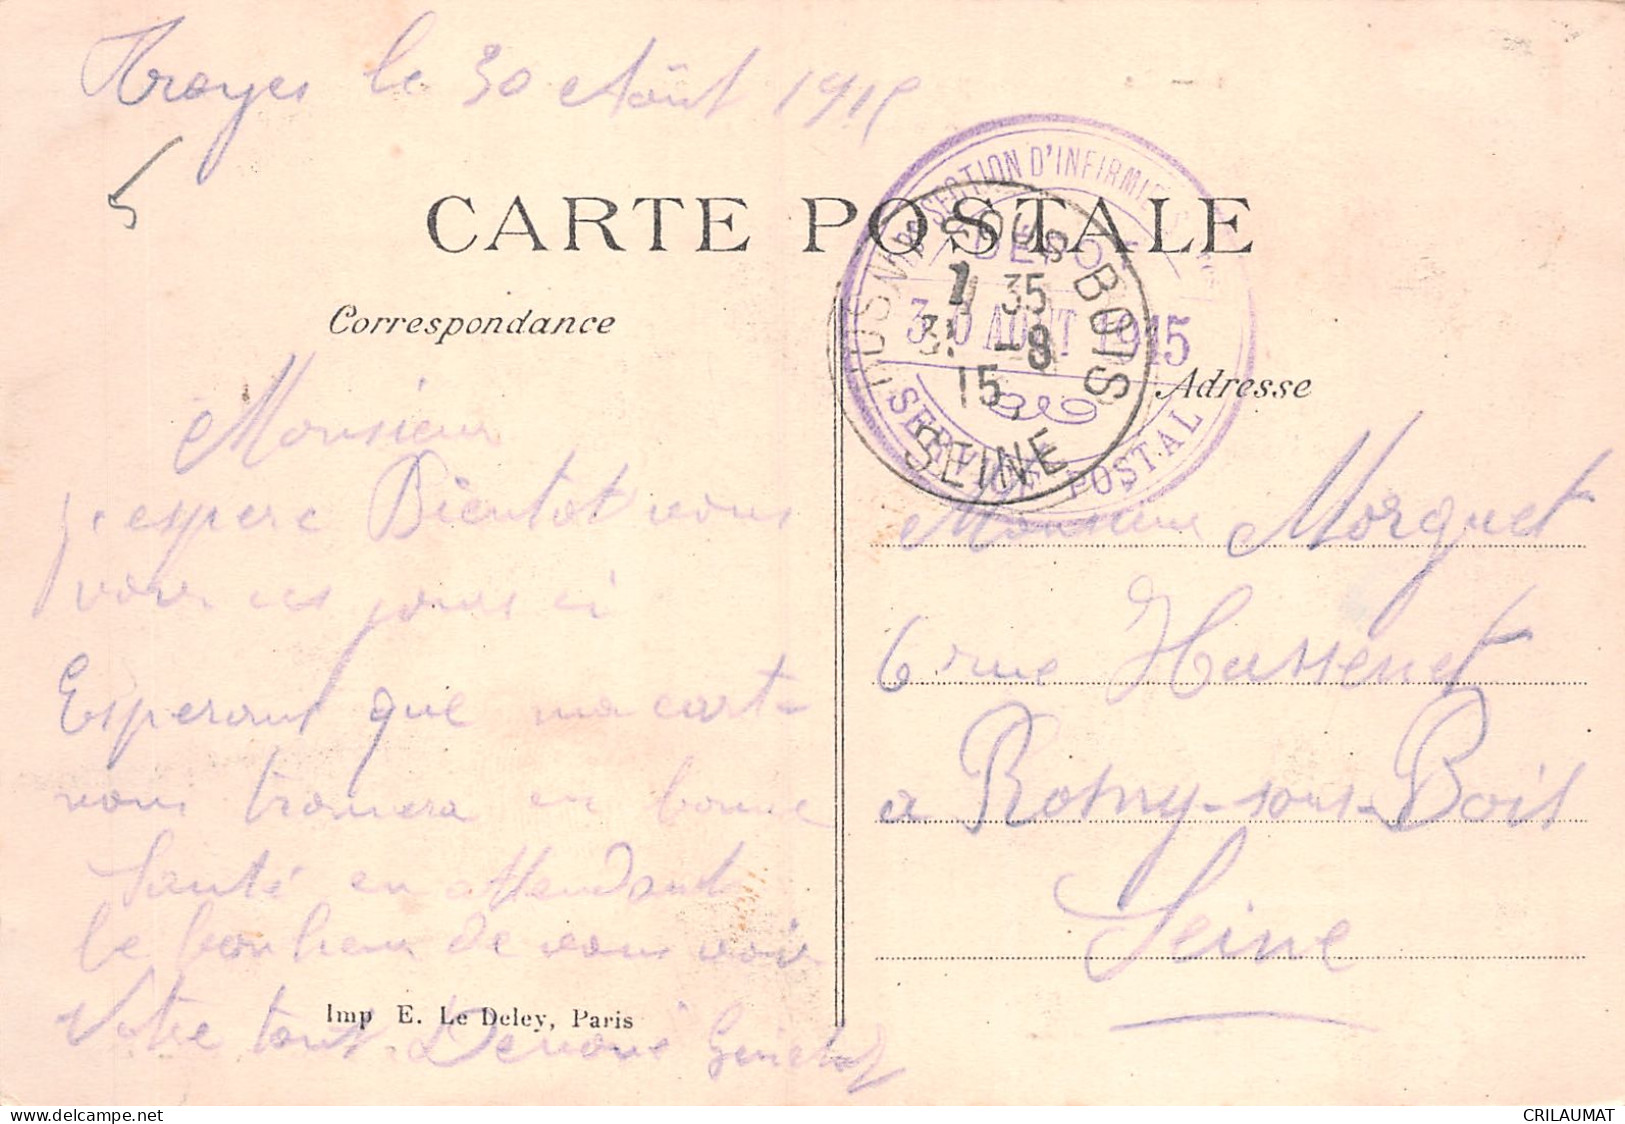 Troyes le 30 Août 1915
5
CARTE POSTALE
Correspondance
SECTION D'INFIRMIE
DÉPOT
30 AOUT 1915
SERVICE POSTAL
SOUS BOIS
1 35
31 -8
15
SEINE
Adresse
Monsieur
j'espere Bientot vous
voir ces jours ci
Esperant que ma carte
vous trouvera en bonne
Santé en attendant
le bonheur de vous voir
Votre tout Devoué
Imp E. Le Deley, Paris
Monsieur Morquet
6 rue Hussenet
a Rosny-sous-Bois
Seine
CRILAUMAT